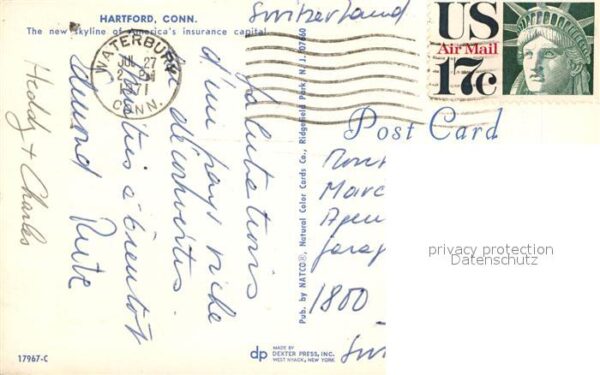 HARTFORD, CONN.
The new skyline of America's insurance capital
WATERBURY
JUL 27
2 PM
1971
CONN.
Salutations
d'un pays riche
de découvertes
à bientôt
Heddy + Charles
17967-C
Pub. by NATCO®, Natural Color Cards Co., Ridgefield Park, N. J. 07660
dp MADE BY
DEXTER PRESS, INC.
WEST NYACK, NEW YORK
Switzerland
US
Air Mail
17c
Post Card
Marc
1800
privacy protection
Datenschutz